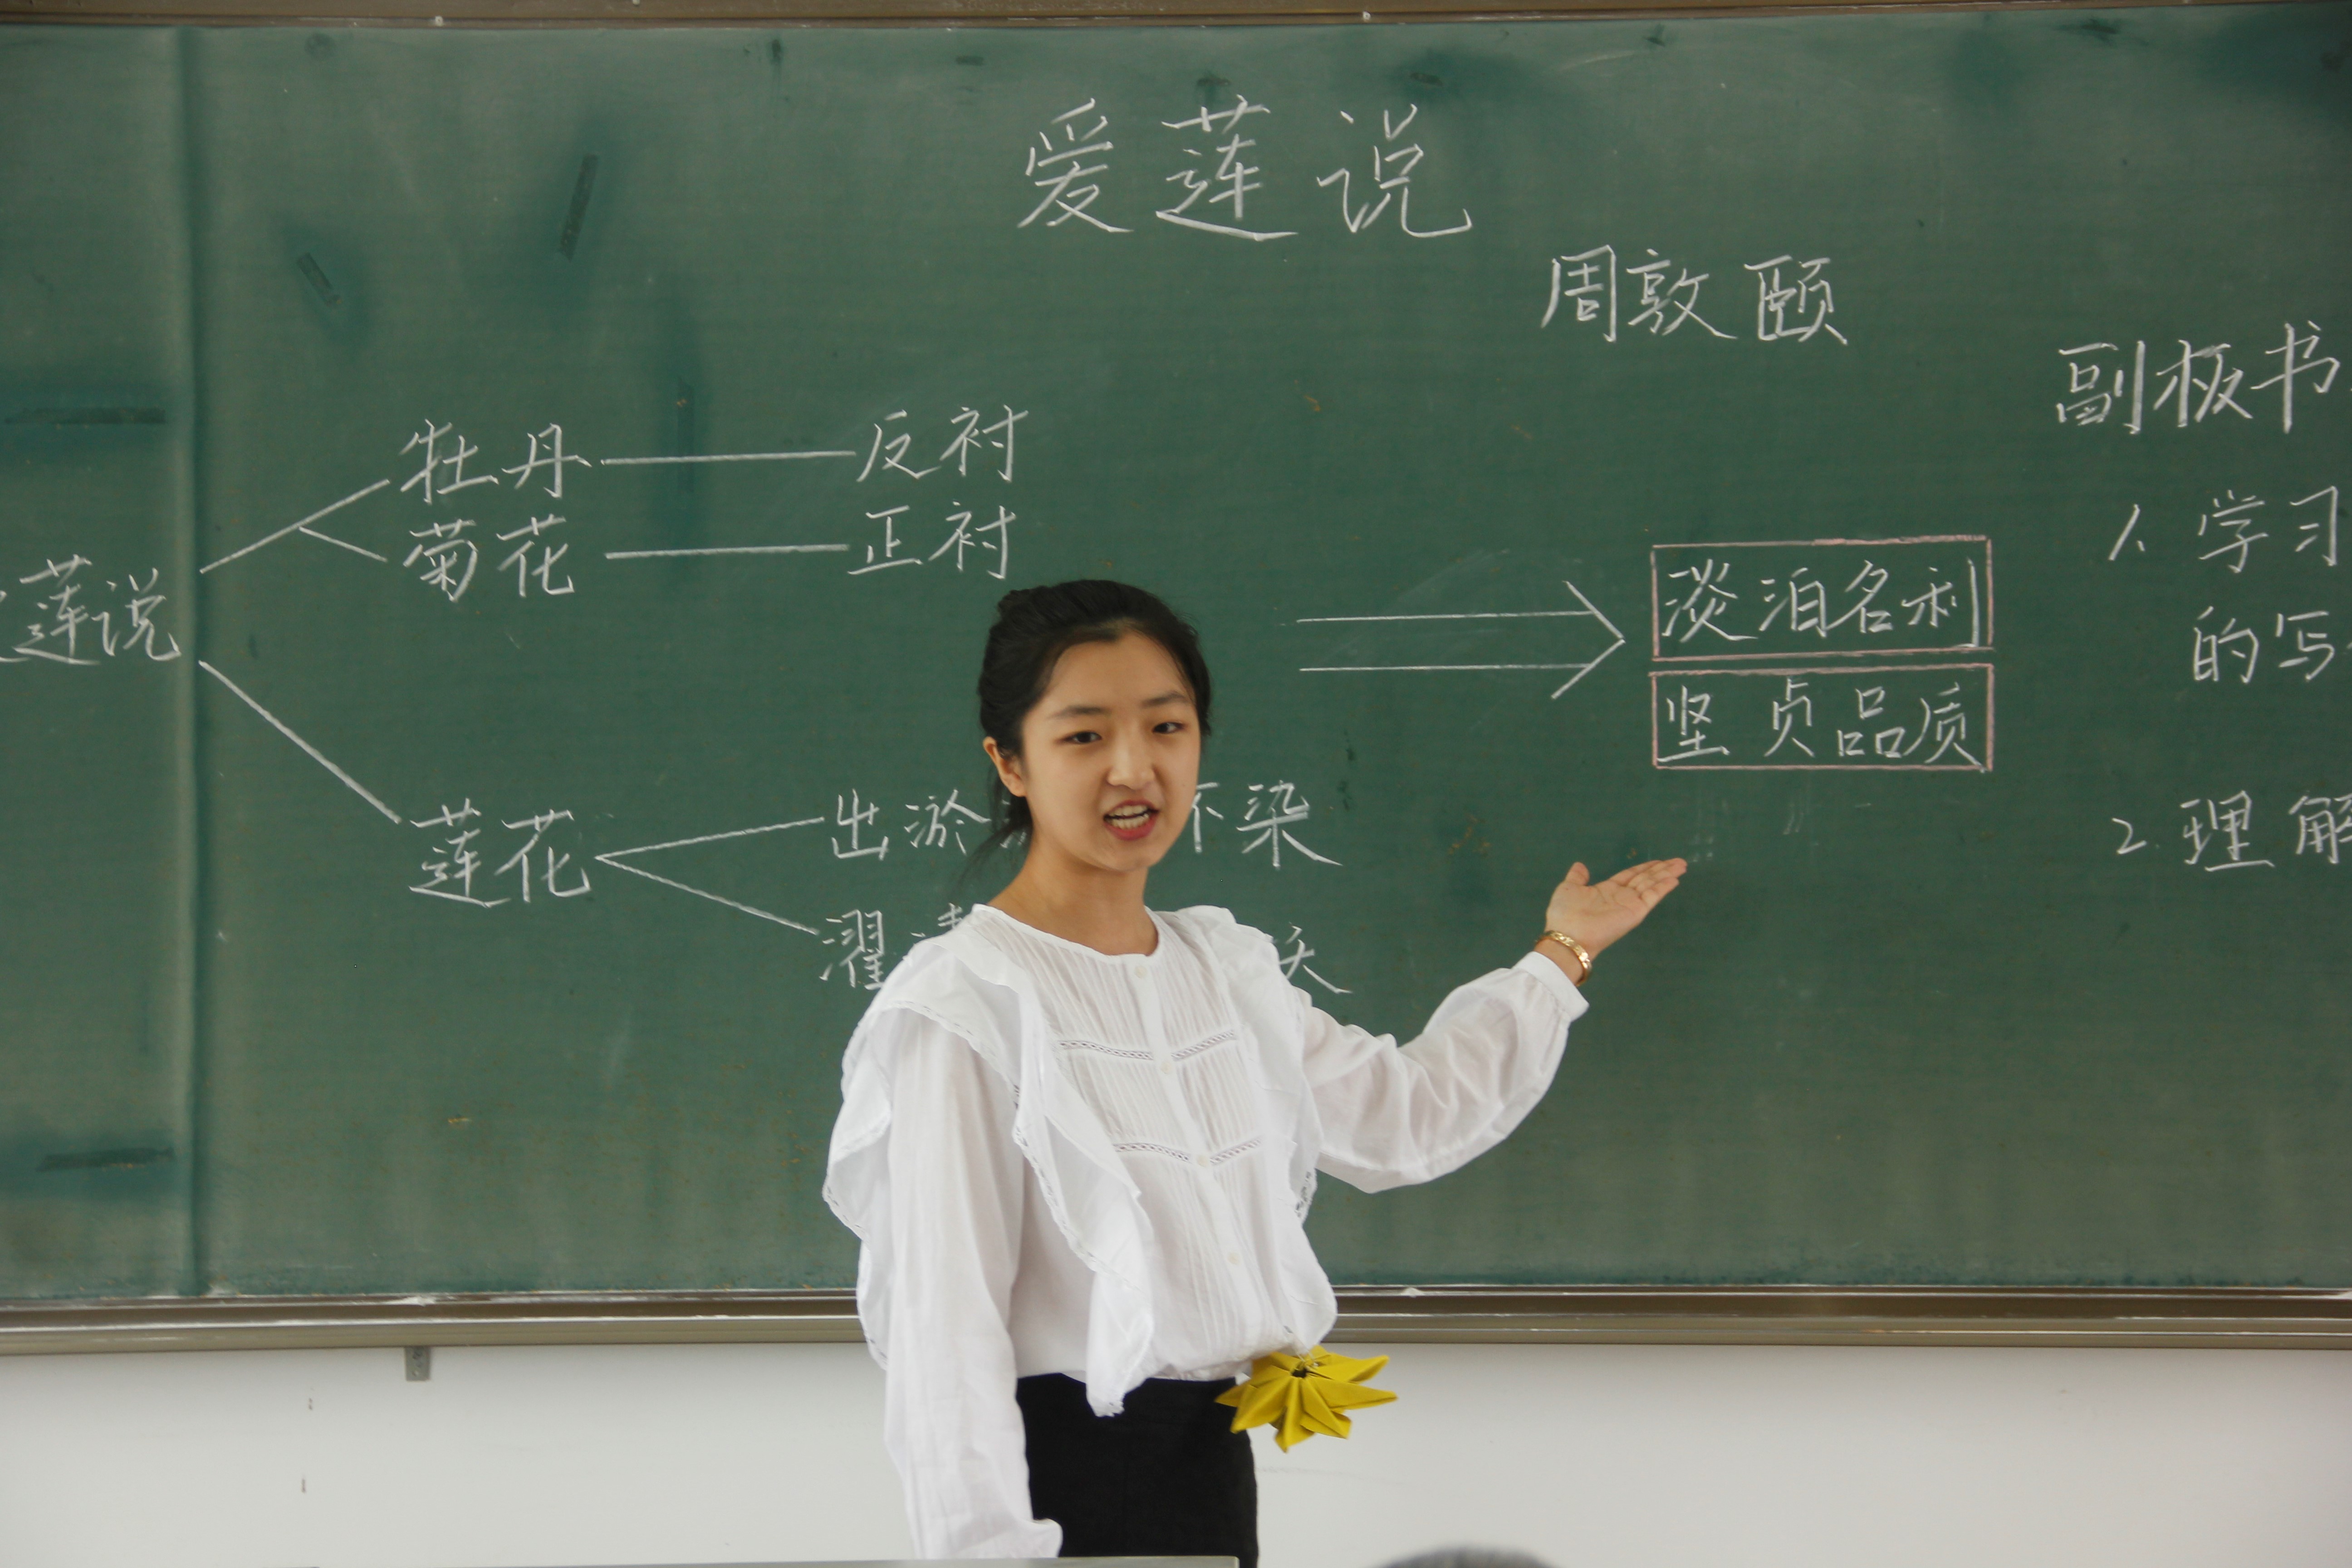 爱莲说
周敦颐
莲说
牡丹 反衬
菊花 正衬
莲花
出淤 不染
濯
淡泊名利
坚贞品质
副板书
1、学习
的写
2.理解